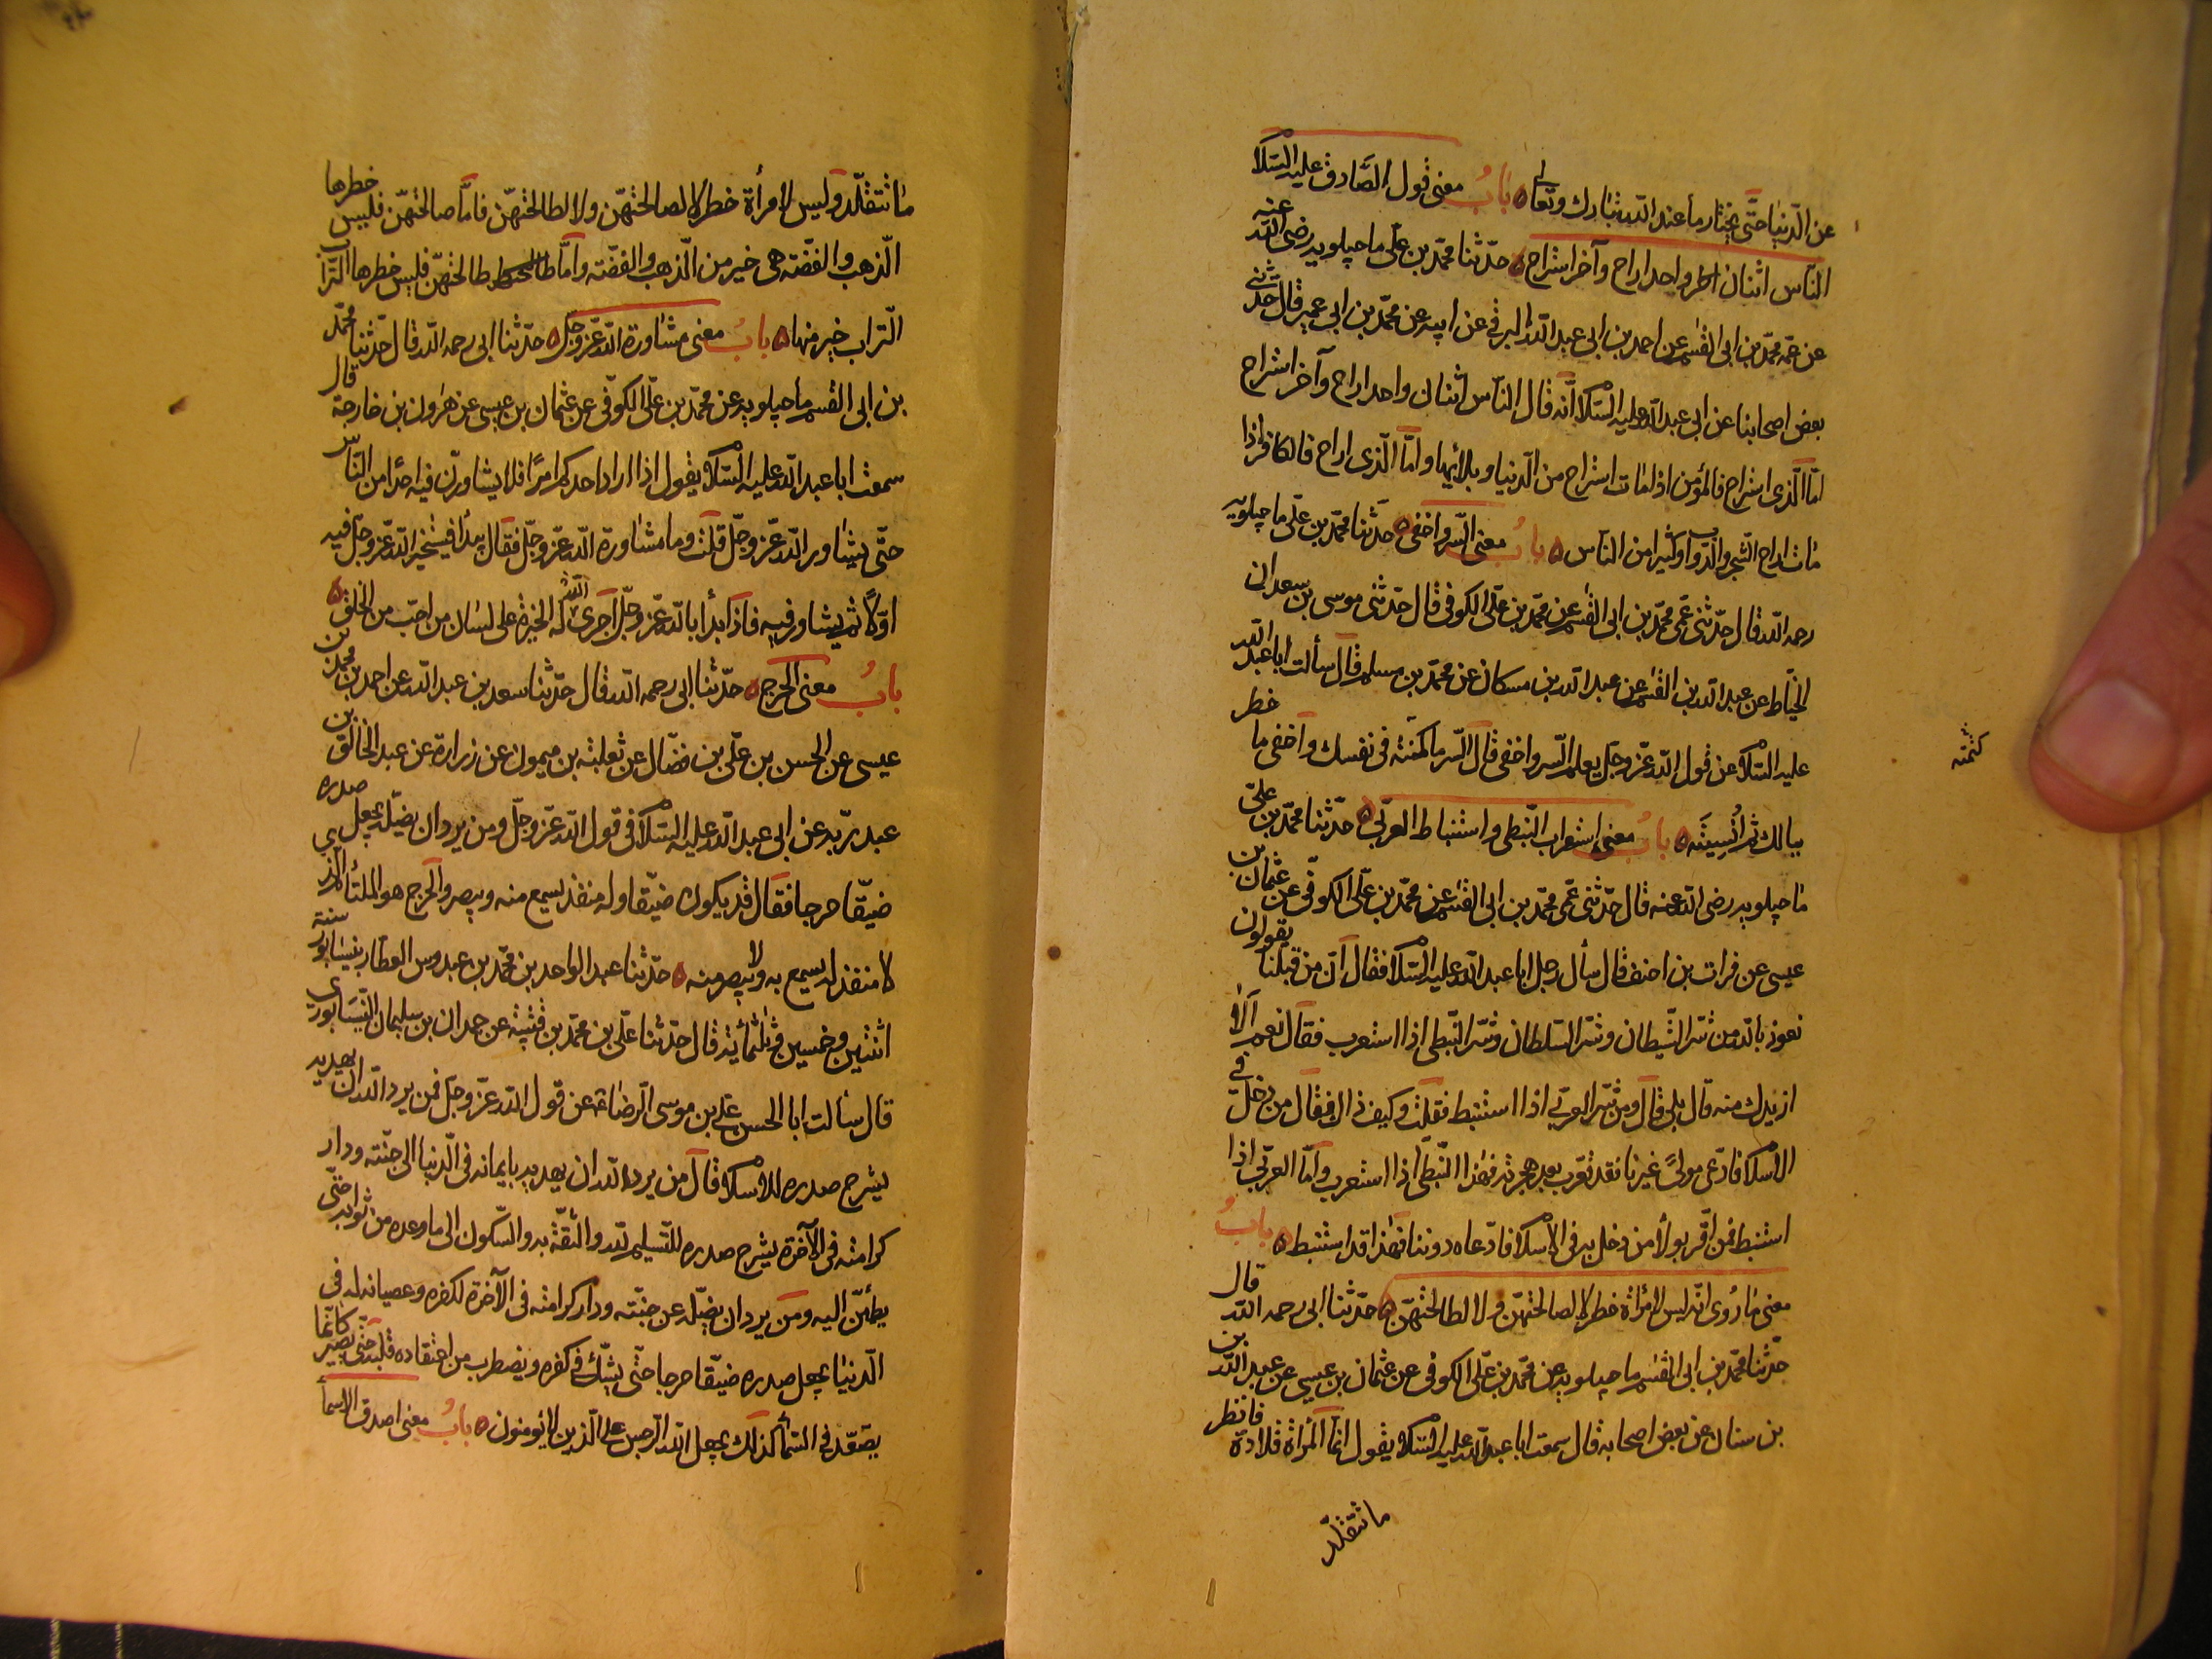 عن الدّنيا حتّى يختار ما عند الله تبارك وتعالى ٥ بابُ معنى قول الصّادق عليه السّلام
النّاس اثنان واحد اراح وآخر استراح ٥ حدّثنا محمّد بن علىّ ماجيلويه رضى الله عنه
عن عمّه محمّد بن ابى القٰسم عن احمد بن ابى عبد الله البرقى عن ابيه عن محمّد بن ابى عمير قال حدّثنى
بعض اصحابنا عن ابى عبد الله عليه السّلام انّه قال النّاس اثنان واحد اراح وآخر استراح
امّا الّذى استراح فالمؤمن اذا مات استراح من الدّنيا وبلائها وامّا الّذى اراح فالكافر اذا
مات اراح الشّجر والدّوابّ وكثيرا من النّاس ٥ بابُ معنى السّر واخفى ٥ حدّثنا محمّد بن علىّ ماجيلويه
رحمه الله قال حدّثنى عمّى محمّد بن ابى القٰسم عن محمّد بن علىّ الكوفى قال حدّثنى موسى بن سعدان
الخيّاط عن عبد الله بن القٰسم عن عبد الله بن مسكان عن محمّد بن مسلم قال سألت ابا عبد الله
عليه السّلام عن قول الله عزّ وجلّ يعلم السّر واخفى قال السّر ما كتمته فى نفسك واخفى ما خطر
ببالك ثم اُنْسِيتَه ٥ بابُ معنى استعراب النّبطى واستنباط العربى ٥ حدّثنا محمّد بن علىّ
ماجيلويه رضى الله عنه قال حدّثنى عمّى محمّد بن ابى القٰسم عن محمّد بن علىّ الكوفى عن عثمان بن
عيسى عن فرات بن احنف قال سأل رجل ابا عبد الله عليه السّلام فقال انّ من قبلنا يقولون
نعوذ بالله من شرّ الشّيطان وشرّ السّلطان وشرّ النّبطى اذا استعرب فقال نعم الا
ازيدك منه قال بلى قال ومن شرّ العربى اذا استنبط فقلت وكيف ذاك فقال من دخل فى
الاسلام فادّعى مولىً غيرنا فقد تعرّب بعد هجرته فهٰذا النّبطى اذا استعرب وامّا العربى اذا
استنبط فمن اقرّ بولاء من دخل به فى الاسلام فادّعاه دوننا فهٰذا قد استنبط ٥ بابُ
معنى ما رُوى انّه ليس لامرأة خطر لا لصالحتهنّ ولا لطالحتهنّ ٥ حدّثنا ابى رحمه الله قال
حدّثنا محمّد بن ابى القٰسم ماجيلويه عن محمّد بن علىّ الكوفى عن عثمان بن عيسى عن عبد الله بن
بن سنان عن بعض اصحابه قال سمعت ابا عبد الله عليه السّلام يقول انّما المرأة قلادة فانظر
ما تتقلّد
كتمته
ما تتقلّد وليس لامرأة خطر لا لصالحتهنّ ولا لطالحتهنّ فامّا صالحتهنّ فليس خطرها
الذّهب والفضّة هى خير من الذّهب والفضّة وامّا طالحتهنّ فليس خطرها التّراب
التّراب خير منها ٥ بابُ معنى مشاورة الله عزّ وجلّ ٥ حدّثنا ابى رحمه الله قال حدّثنا محمّد
بن ابى القٰسم ماجيلويه عن محمّد بن علىّ الكوفى عن عثمان بن عيسى عن هٰرون بن خارجة قال
سمعت ابا عبد الله عليه السّلام يقول اذا اراد احدكم امرًا فلا يشاورنّ فيه احدًا من النّاس
حتّى يشاور الله عزّ وجلّ قلت وما مشاورة الله عزّ وجلّ فقال يبدأ فيستخير الله عزّ وجلّ فيه
اوّلاً ثم يشاور فيه فاذا بدأ بالله عزّ وجلّ اجرى الله له الخيرة على لسان من احبّ من الخلق ٥
بابُ معنى الحرج ٥ حدّثنا ابى رحمه الله قال حدّثنا سعد بن عبد الله عن احمد بن محمّد بن
عيسى عن الحسن بن علىّ بن فضّال عن ثعلبة بن ميمون عن زرارة عن عبد الخالق بن
عبد ربّه عن ابى عبد الله عليه السّلام فى قول الله عزّ وجلّ ومن يرد ان يضلّه يجعل صدره
ضيّقا حرجا فقال قد يكون ضيّقا وله منفذ يسمع منه ويبصر والحرج هو الملتأم الّذى
لا منفذ له يسمع به ولا يبصر منه ٥ حدّثنا عبد الواحد بن محمّد بن عبدوس العطّار بنيسابور سنة
اثنتين وخمسين وثلثمأية قال حدّثنا علىّ بن محمّد بن قتيبة عن حمدان بن سليمان النّيسابورى
قال سألت ابا الحسن على بن موسى الرّضا ع عن قول الله عزّ وجلّ فمن يرد الله ان يهديه
يشرح صدره للاسلام قال من يرد الله ان يهديه بايمانه فى الدّنيا الى جنّته ودار
كرامته فى الآخرة يشرح صدره للتّسليم لله والثّقة به والسّكون الى ما وعده من ثوابه حتّى
يطمئنّ اليه ومن يرد ان يضلّه عن جنّته ودار كرامته فى الآخرة لكفره وعصيانه له فى
الدّنيا يجعل صدره ضيّقا حرجا حتّى يشكّ فى كفره ويضطرب من اعتقاده قلبه حتّى يصير كانّما
يصّعّد فى السّمأ كذلك يجعل الله الرّجس على الّذين لا يؤمنون ٥ بابُ معنى اصدق الاسمأ